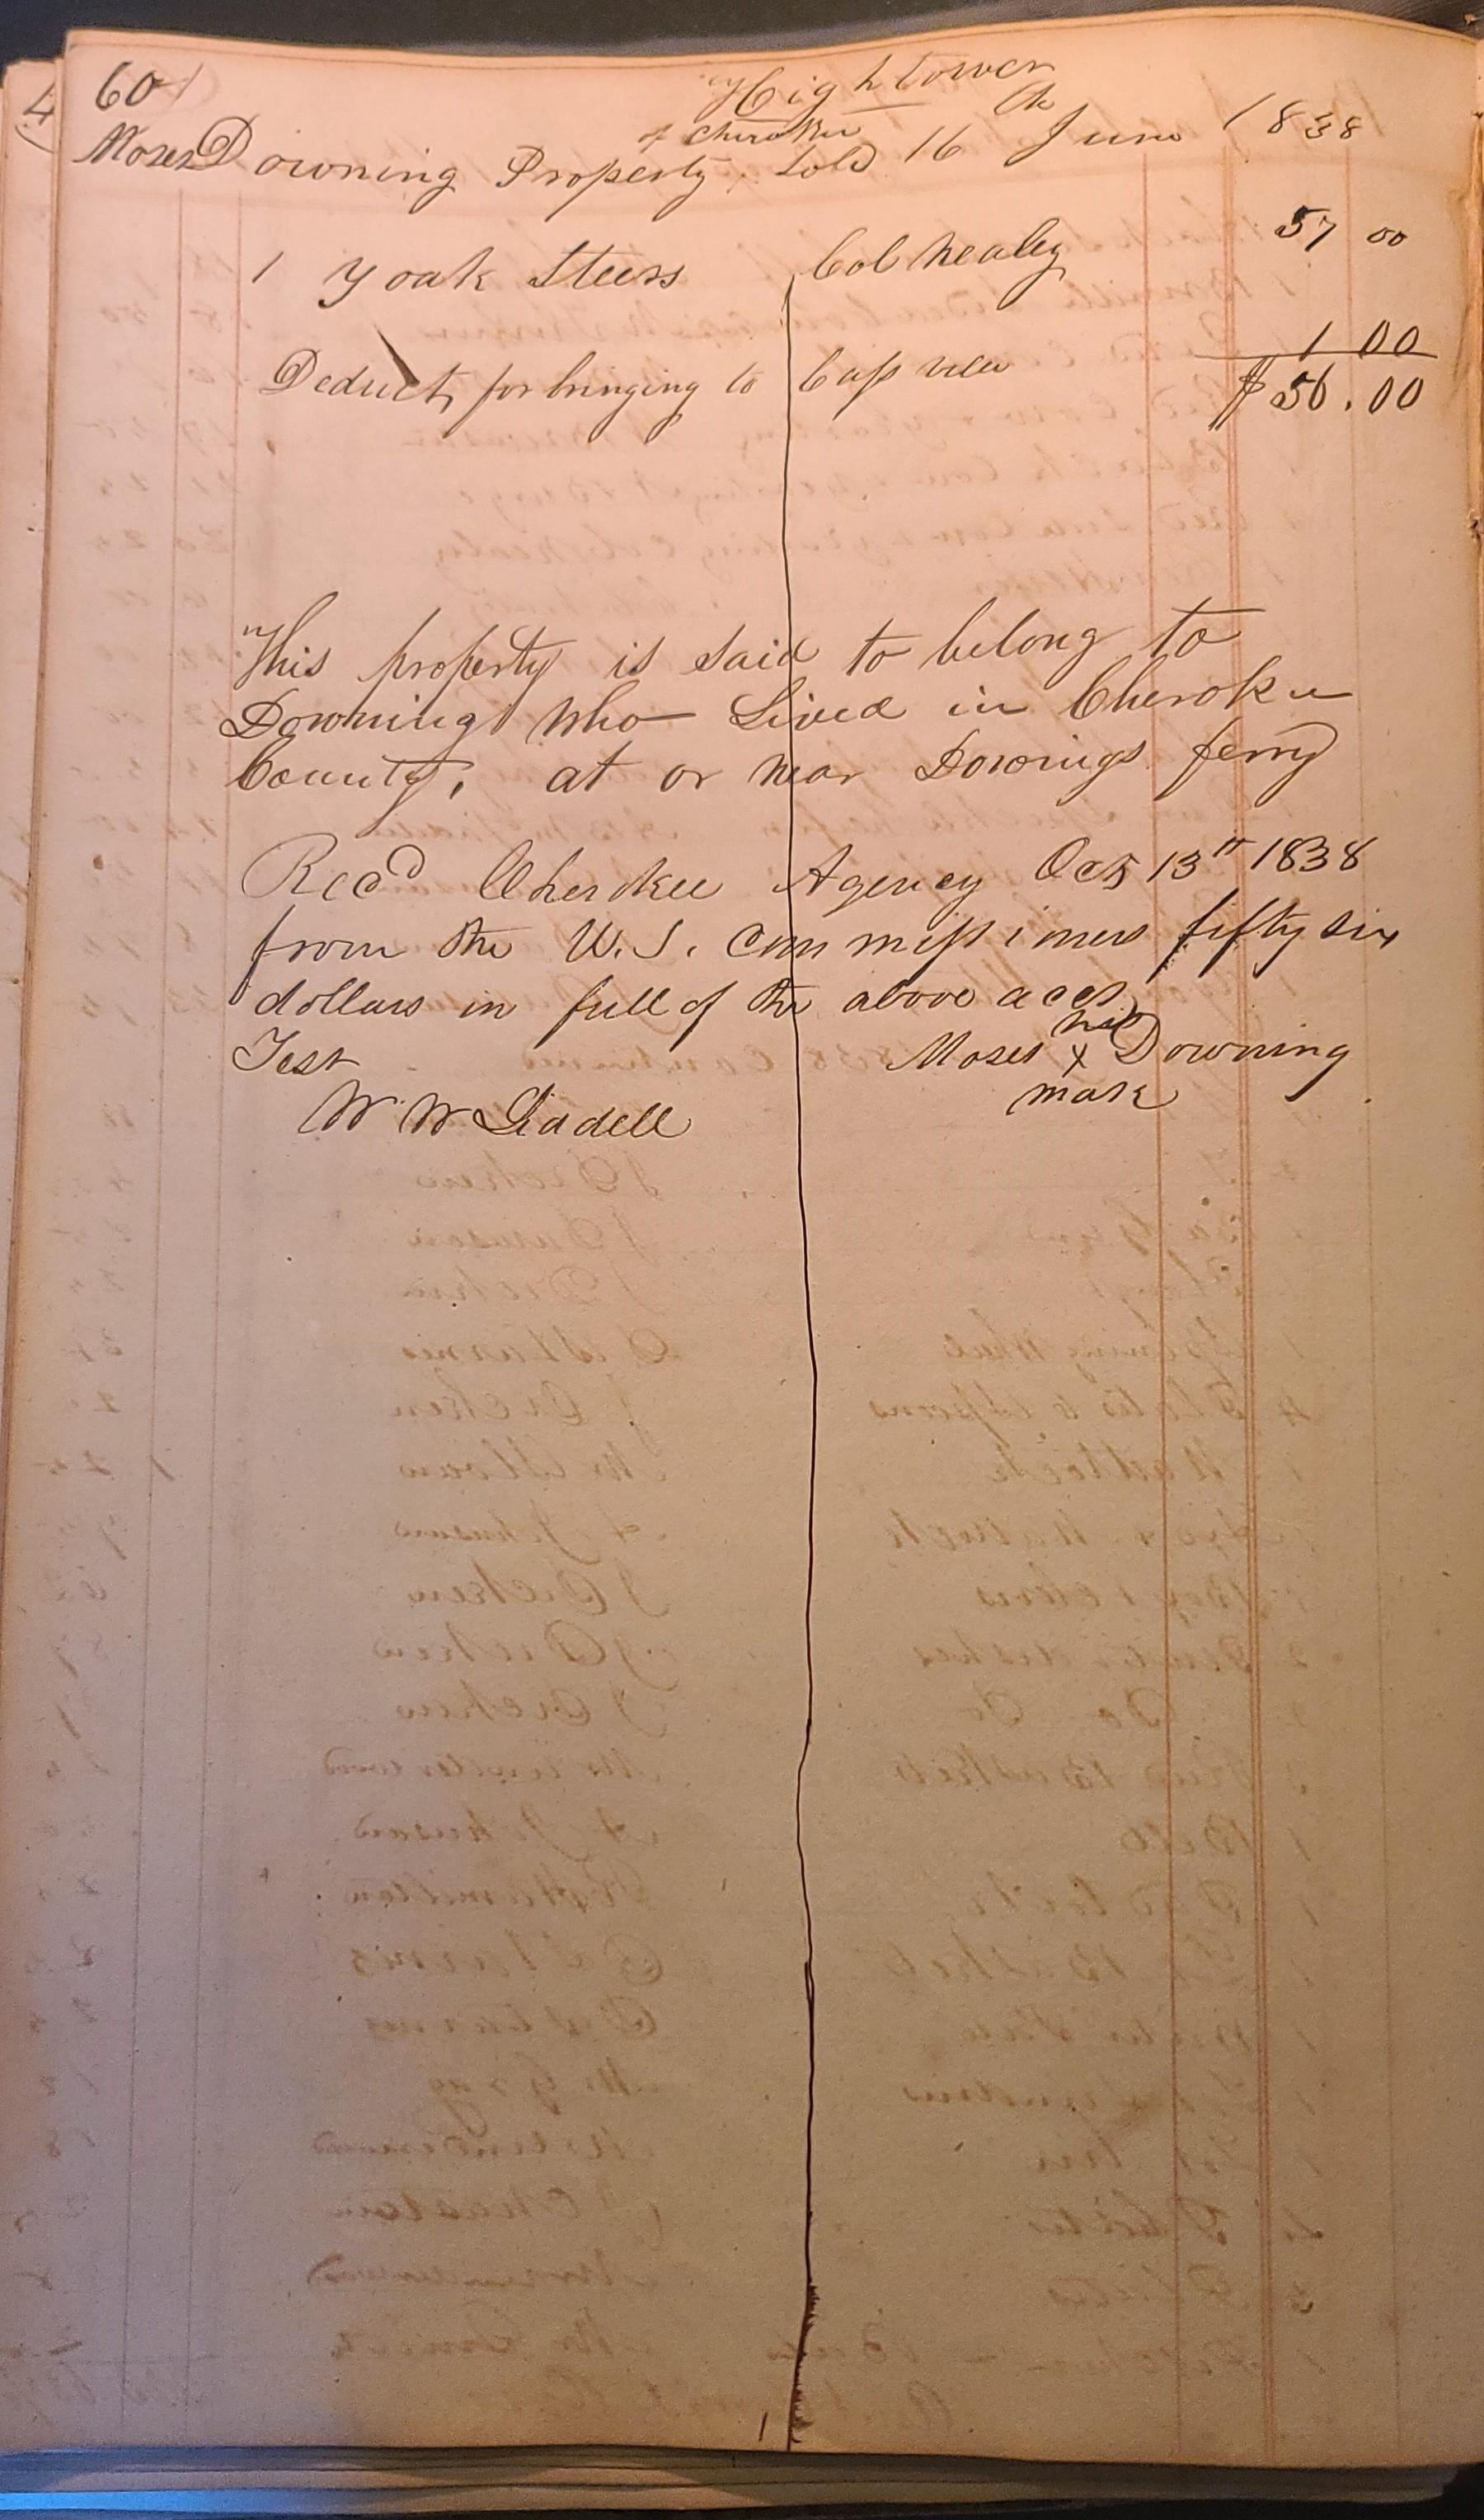 60
Hightower
of Cherokee
Moses Downing Property Sold 16th June 1838
1 Yoak Steers Col Nealey 57 00
Deduct for bringing to Cassville 1 00
$56.00
This property is said to belong to
Downing who Lived in Cherokee
County, at or near Downings ferry
Recd Cherokee Agency Oct 13th 1838
from the U.S. Commissioners fifty six
dollars in full of the above acct
his
Test Moses X Downing
mark
W W Liddell